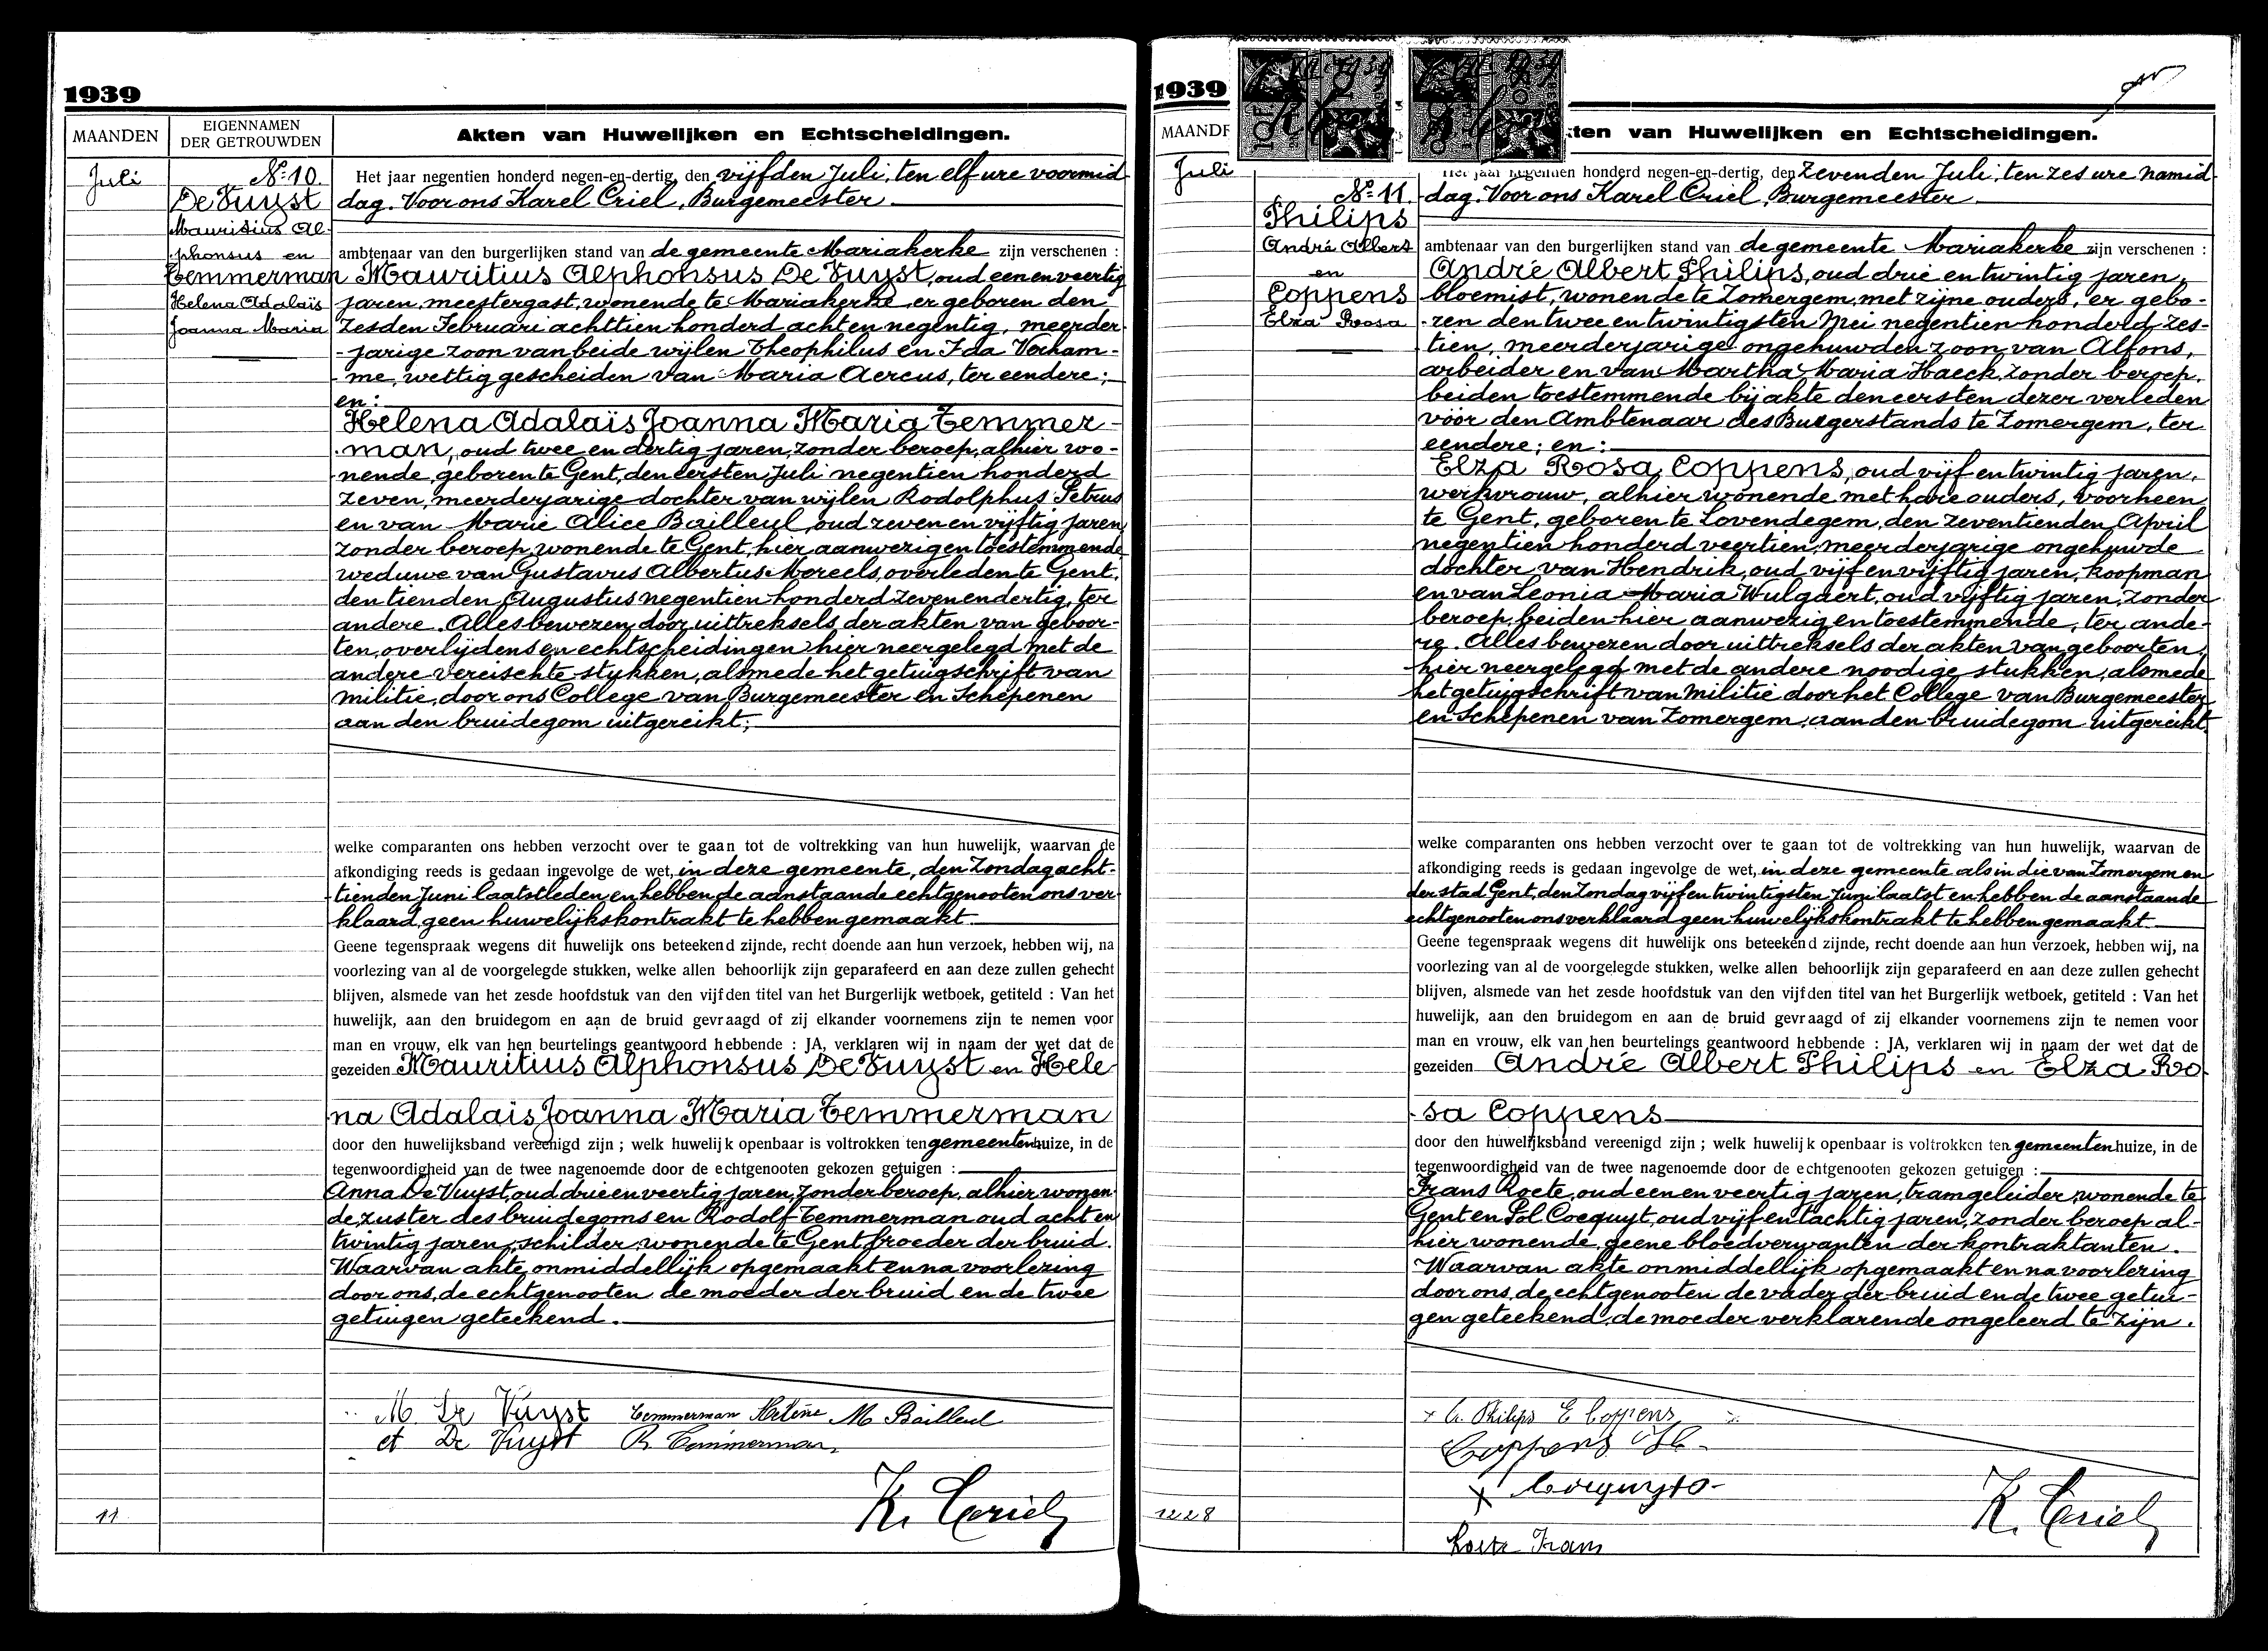 1939
MAANDEN
EIGENNAMEN
DER GETROUWDEN
Akten van Huwelijken en Echtscheidingen.
Juli
No 10.
De Vuyst
Mauritius Al-
phonsus en
Temmerman
Helena Adalaïs
Joanna Maria
Het jaar negentien honderd negen-en-dertig, den vijfden Juli, ten elf ure voormid-
dag. Voor ons Karel Criel, Burgemeester
ambtenaar van den burgerlijken stand van de gemeente Mariakerke zijn verschenen :
Mauritius Alphonsus De Vuyst, oud een en veertig
jaren, meestergast, wonende te Mariakerke er geboren den
zesden Februari achttien honderd acht en negentig, meerder-
-jarige zoon van beide wijlen Theophilus en Ida Verham-
-me, wettig gescheiden van Maria Aercus, ter eendere;
en:
Helena Adalaïs Joanna Maria Temmer-
-man, oud twee en dertig jaren, zonder beroep, alhier wo-
-nende, geboren te Gent, den eersten Juli negentien honderd
zeven, meerderjarige dochter van wijlen Rodolphus Petrus
en van Marie Alice Bailleul, oud zeven en vijftig jaren,
zonder beroep, wonende te Gent, hier aanwezig en toestemmende
weduwe van Gustavus Albertus Mereels, overleden te Gent,
den tienden Augustus negentien honderd zeven en dertig, ter
andere. Alles bewezen door uittreksels der akten van geboor-
ten, overlijdens en echtscheidingen hier neergelegd met de
andere vereischte stukken, alsmede het getuigschrift van
militie, door ons College van Burgemeester en Schepenen
aan den bruidegom uitgereikt;
welke comparanten ons hebben verzocht over te gaan tot de voltrekking van hun huwelijk, waarvan de
afkondiging reeds is gedaan ingevolge de wet, in deze gemeente, den Zondag acht-
-tienden Juni laatstleden, en hebben de aanstaande echtgenooten ons ver-
klaard geen huwelijkskontrakt te hebben gemaakt
Geene tegenspraak wegens dit huwelijk ons beteekend zijnde, recht doende aan hun verzoek, hebben wij, na
voorlezing van al de voorgelegde stukken, welke allen behoorlijk zijn geparafeerd en aan deze zullen gehecht
blijven, alsmede van het zesde hoofdstuk van den vijfden titel van het Burgerlijk wetboek, getiteld : Van het
huwelijk, aan den bruidegom en aan de bruid gevraagd of zij elkander voornemens zijn te nemen voor
man en vrouw, elk van hen beurtelings geantwoord hebbende : JA, verklaren wij in naam der wet dat de
gezeiden Mauritius Alphonsus De Vuyst en Hele-
na Adalais Joanna Maria Temmerman
door den huwelijksband vereenigd zijn ; welk huwelijk openbaar is voltrokken ten gemeentenhuize, in de
tegenwoordigheid van de twee nagenoemde door de echtgenooten gekozen getuigen :
Anna De Vuyst, oud drie en veertig jaren, zonder beroep, alhier wonen-
de, zuster des bruidegoms en Rodolf Temmerman oud acht en
twintig jaren, schilder, wonende te Gent, broeder der bruid.
Waarvan akte, onmiddellijk opgemaakt en na voorlezing
door ons, de echtgenooten de moeder der bruid en de twee
getuigen geteekend.
M. De Vuyst Temmerman Helène M Bailleul
et De Vuyst R. Temmerman
K. Criel
11
1939
MAANDE
kten van Huwelijken en Echtscheidingen.
Juli
No 11.
Philips
André Albert
en
Coppens
Elza Rosa
Het jaar negentien honderd negen-en-dertig, den Zevenden Juli, ten zes ure namid-
dag. Voor ons Karel Criel, Burgemeester
ambtenaar van den burgerlijken stand van de gemeente Mariakerke zijn verschenen :
André Albert Philips, oud drie en twintig jaren,
bloemist, wonende te Zomergem, met zijne ouders, er gebo-
-ren den twee en twintigsten Mei negentien honderd zes-
tien, meerderjarige ongehuwden zoon van Alfons,
arbeider en van Martha Maria Haeck, zonder beroep,
beiden toestemmende bij akte den eersten dezer verleden
vóór den Ambtenaar des Burgerstands te Zomergem, ter
eendere; en:
Elza Rosa Coppens, oud vijf en twintig jaren,
werkvrouw, alhier wonende met hare ouders, voorheen
te Gent, geboren te Lovendegem, den zeventienden April
negentien honderd veertien, meerderjarige ongehuwde
dochter van Hendrik, oud vijf en vijftig jaren, koopman
en van Leonia Maria Wulgaert, oud vijftig jaren, zonder
beroep, beiden hier aanwezig en toestemmende, ter ande-
re. Alles bewezen door uittreksels der akten van geboorten,
hier neergelegd met de andere noodige stukken, alsmede
het getuigschrift van militie door het College van Burgemeester
en Schepenen van Zomergem, aan den bruidegom uitgereikt
welke comparanten ons hebben verzocht over te gaan tot de voltrekking van hun huwelijk, waarvan de
afkondiging reeds is gedaan ingevolge de wet, in deze gemeente als in die van Zomergem en
der stad Gent, den Zondag vijf en twintigsten Juni laatst en hebben de aanstaande
echtgenooten ons verklaard geen huwelijkskontrakt te hebben gemaakt
Geene tegenspraak wegens dit huwelijk ons beteekend zijnde, recht doende aan hun verzoek, hebben wij, na
voorlezing van al de voorgelegde stukken, welke allen behoorlijk zijn geparafeerd en aan deze zullen gehecht
blijven, alsmede van het zesde hoofdstuk van den vijfden titel van het Burgerlijk wetboek, getiteld : Van het
huwelijk, aan den bruidegom en aan de bruid gevraagd of zij elkander voornemens zijn te nemen voor
man en vrouw, elk van hen beurtelings geantwoord hebbende : JA, verklaren wij in naam der wet dat de
gezeiden André Albert Philips en Elza Ro-
-sa Coppens
door den huwelijksband vereenigd zijn ; welk huwelijk openbaar is voltrokken ten gemeentenhuize, in de
tegenwoordigheid van de twee nagenoemde door de echtgenooten gekozen getuigen :
Frans Roete, oud een en veertig jaren, tramgeleider, wonende te
Gent en Pol Coequyt, oud vijf en tachtig jaren, zonder beroep al-
hier wonende, geene bloedverwanten der kontraktanten.
Waarvan akte onmiddellijk opgemaakt en na voorlezing
door ons, de echtgenooten de vader der bruid en de twee getui-
gen geteekend, de moeder verklarende ongeleerd te zijn.
A. Philips E Coppens
Coppens
K. Criel
1228